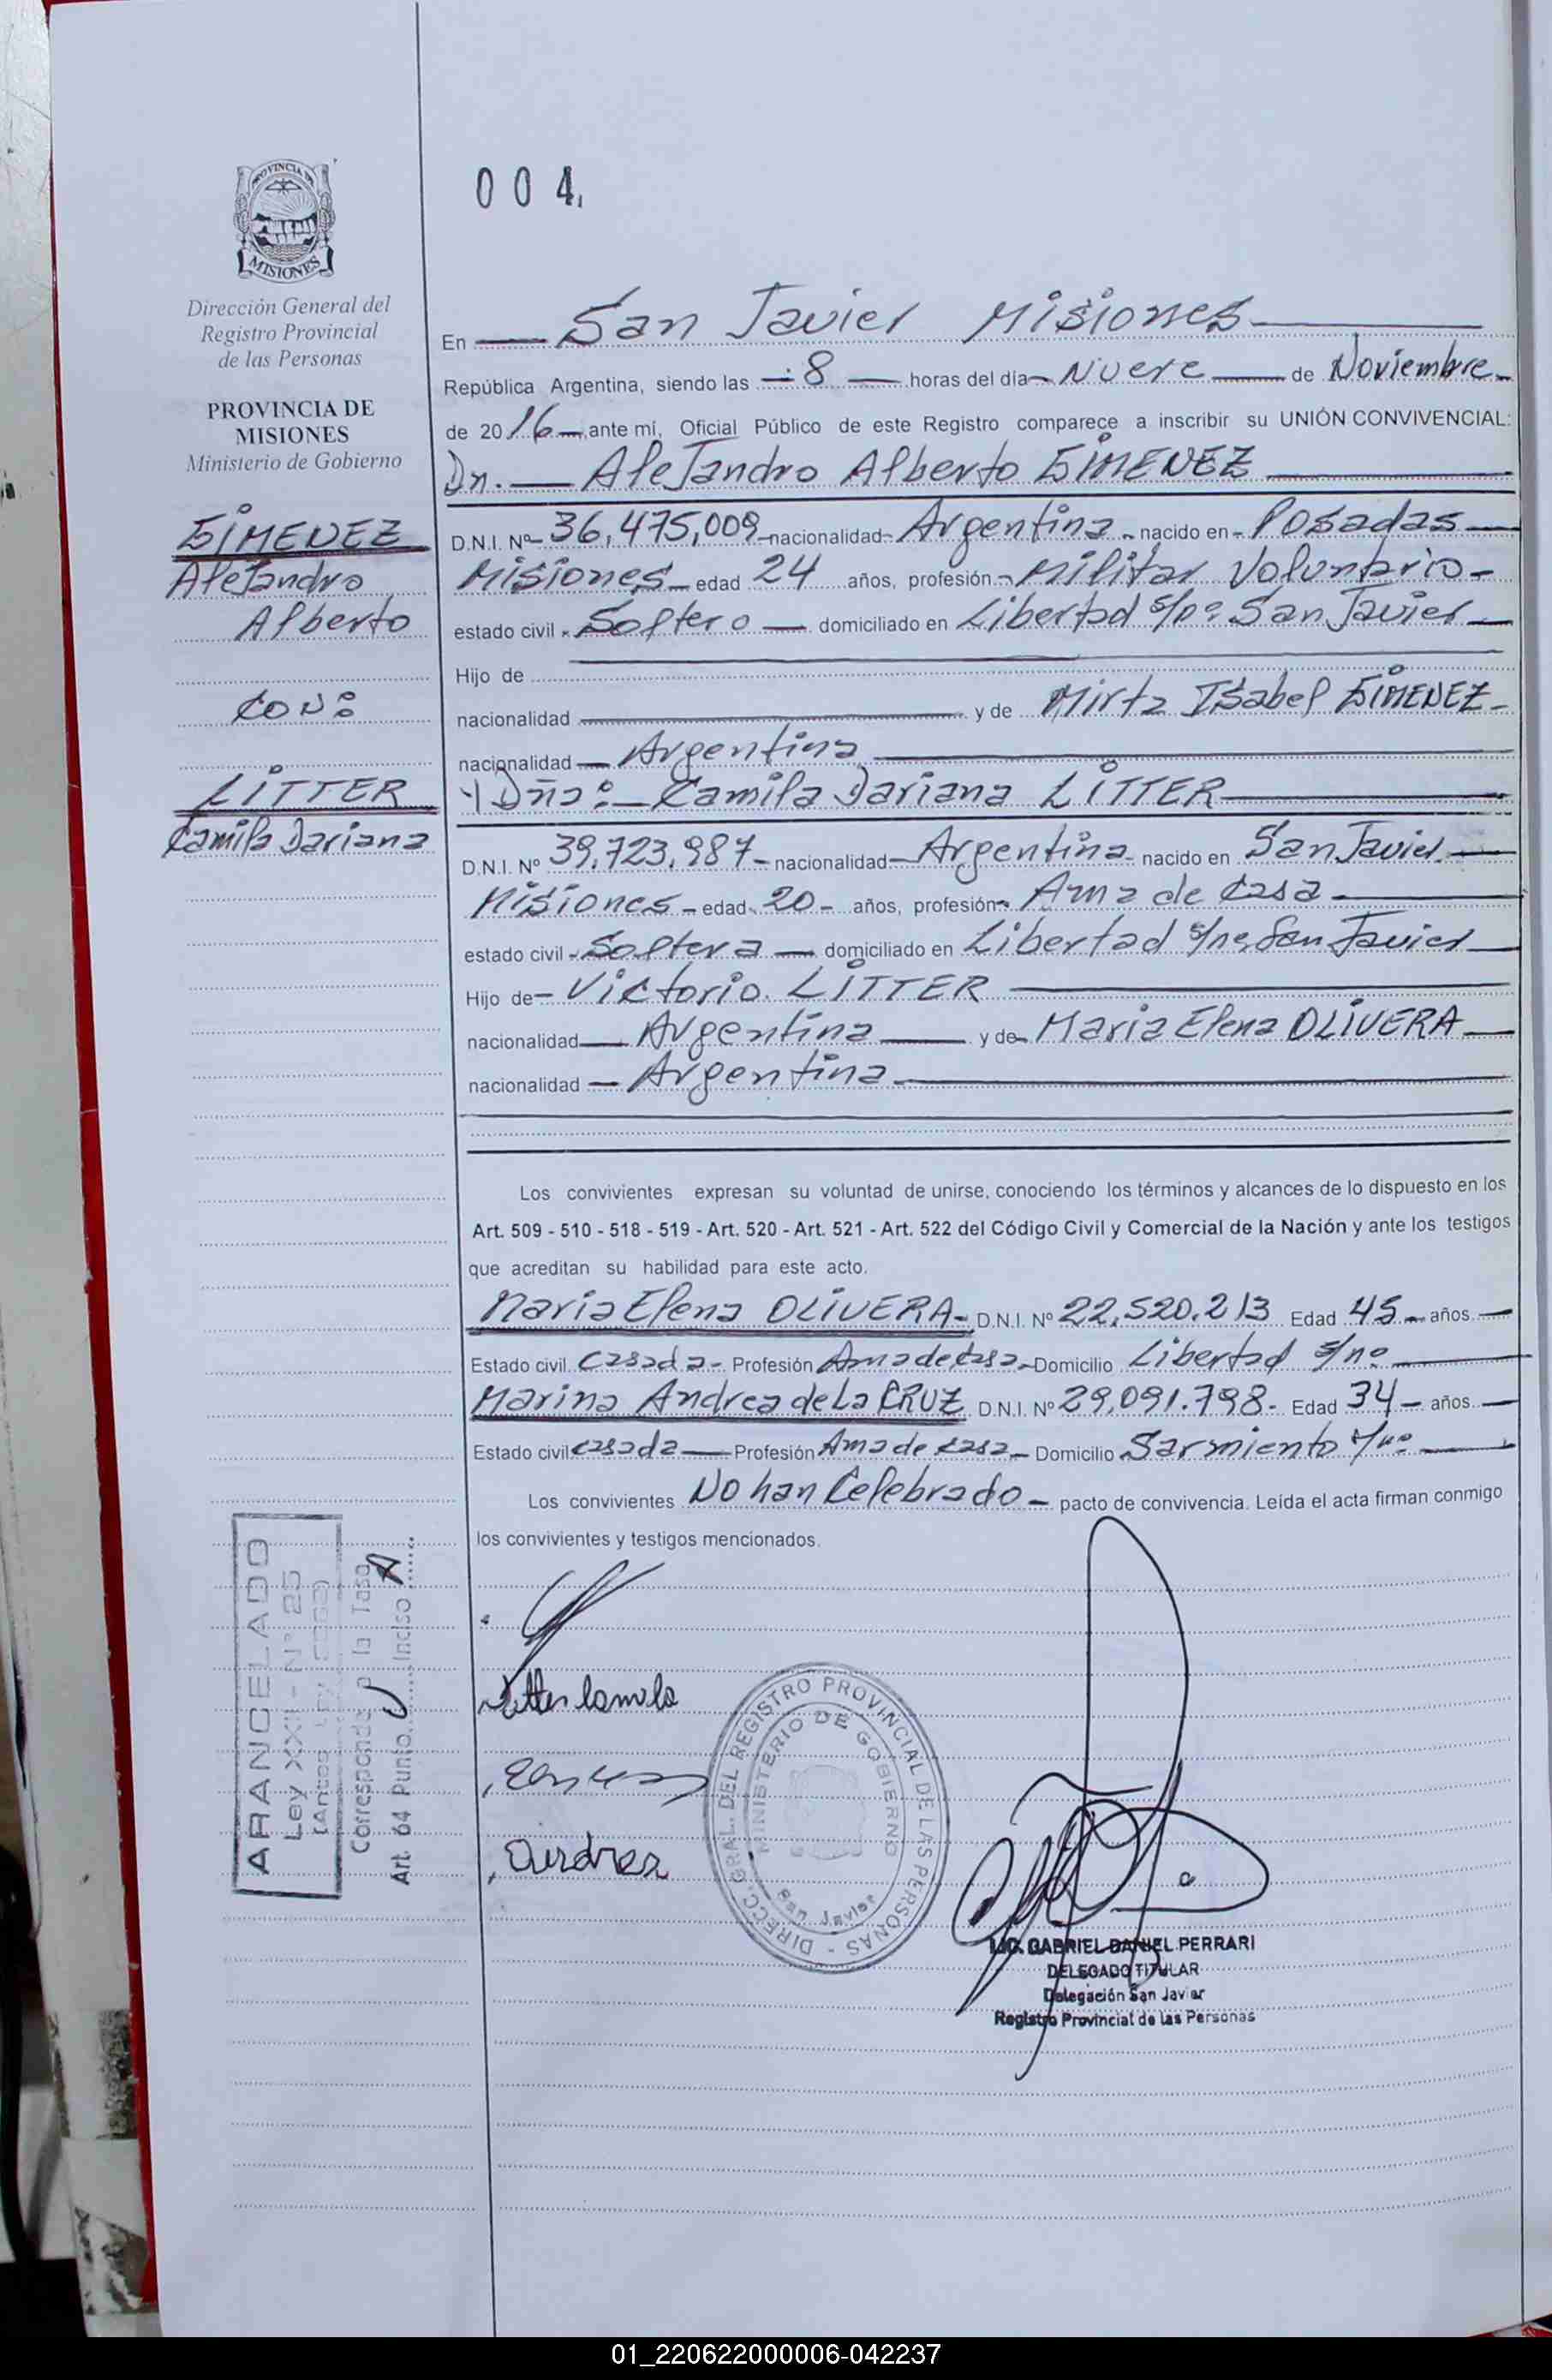 004,
PROVINCIA DE
MISIONES
Dirección General del
Registro Provincial
de las Personas
PROVINCIA DE
MISIONES
Ministerio de Gobierno
GIMENEZ
Alejandro
Alberto
CON:
LITTER
Camila Dariana
En San Javier Misiones
República Argentina, siendo las 8 horas del día Nueve de Noviembre
de 2016 ante mí, Oficial Público de este Registro comparece a inscribir su UNIÓN CONVIVENCIAL:
Dn. Alejandro Alberto GIMENEZ
D.N.I. Nº 36,475,009 nacionalidad Argentina nacido en Posadas
Misiones edad 24 años, profesión Militar Voluntario
estado civil Soltero domiciliado en Libertad s/nº San Javier
Hijo de
nacionalidad y de Mirta Isabel GIMENEZ
nacionalidad Argentina
y Dña: Camila Dariana LITTER
D.N.I. Nº 39,723,987 nacionalidad Argentina nacido en San Javier
Misiones edad 20 años, profesión Ama de Casa
estado civil Soltera domiciliado en Libertad s/nº San Javier
Hijo de Victorio LITTER
nacionalidad Argentina y de Maria Elena OLIVERA
nacionalidad Argentina
Los convivientes expresan su voluntad de unirse, conociendo los términos y alcances de lo dispuesto en los
Art. 509 - 510 - 518 - 519 - Art. 520 - Art. 521 - Art. 522 del Código Civil y Comercial de la Nación y ante los testigos
que acreditan su habilidad para este acto.
Maria Elena OLIVERA D.N.I. Nº 22,520,213 Edad 45 años
Estado civil Casada Profesión Ama de Casa Domicilio Libertad s/nº
Marina Andrea de La CRUZ D.N.I. Nº 29,091.798 Edad 34 años
Estado civil Casada Profesión Ama de Casa Domicilio Sarmiento s/nº
Los convivientes No han Celebrado pacto de convivencia. Leída el acta firman conmigo
los convivientes y testigos mencionados.
Litter Camila
Andrea
ARANCELADO
Ley XXII - Nº 25
Corresponde a la Tasa
Art. 64 Punto Inciso A
DIRECC. GRAL. DEL REGISTRO PROVINCIAL DE LAS PERSONAS
MINISTERIO DE GOBIERNO
San Javier
LIC. GABRIEL DANIEL PERRARI
DELEGADO TITULAR
Delegación San Javier
Registro Provincial de las Personas
01_220622000006-042237